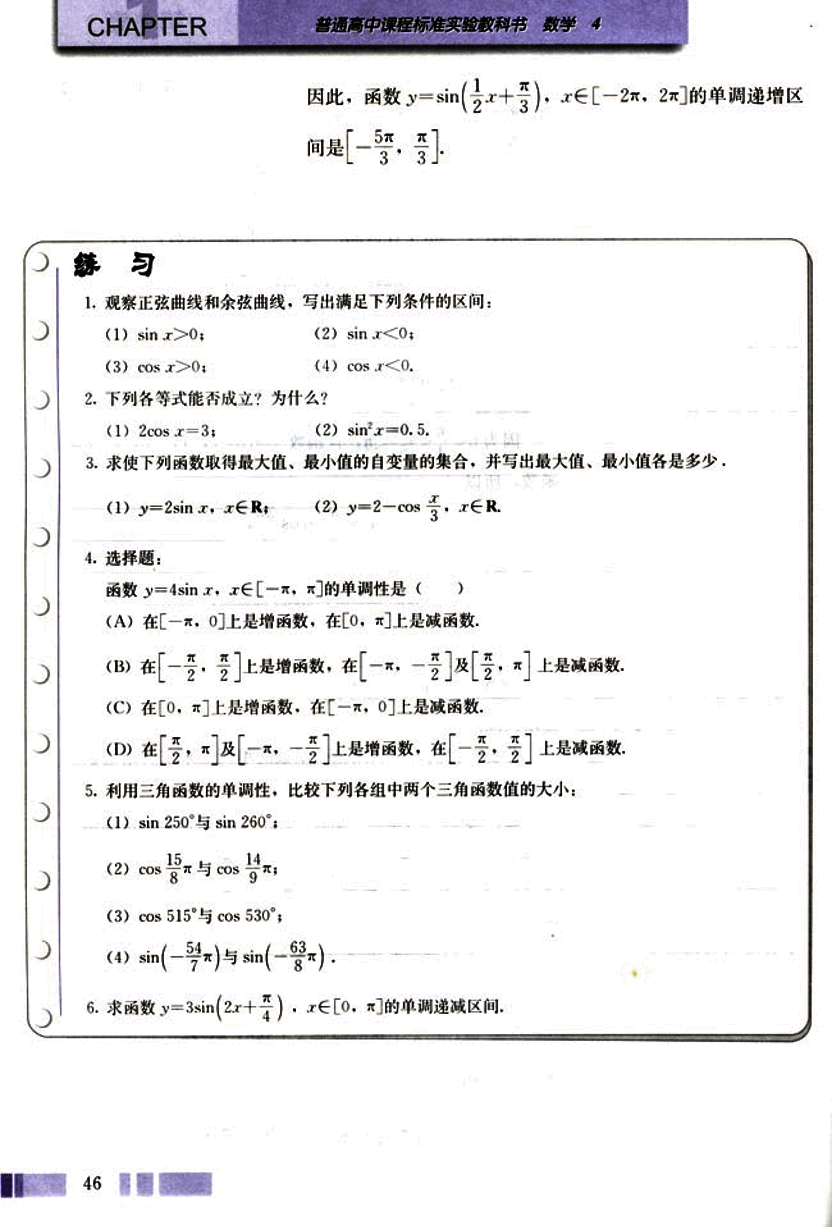 CHAPTER 1
普通高中课程标准实验教科书 数学 4
因此，函数 y=sin(1/2 x+π/3)，x∈[-2π，2π]的单调递增区
间是[-5π/3，π/3].
练 习
1. 观察正弦曲线和余弦曲线，写出满足下列条件的区间：
(1) sin x>0； (2) sin x<0；
(3) cos x>0； (4) cos x<0.
2. 下列各等式能否成立？为什么？
(1) 2cos x=3； (2) sin²x=0.5.
3. 求使下列函数取得最大值、最小值的自变量的集合，并写出最大值、最小值各是多少.
(1) y=2sin x，x∈R； (2) y=2-cos x/3，x∈R.
4. 选择题：
函数 y=4sin x，x∈[-π，π]的单调性是（ ）
(A) 在[-π，0]上是增函数，在[0，π]上是减函数.
(B) 在[-π/2，π/2]上是增函数，在[-π，-π/2]及[π/2，π]上是减函数.
(C) 在[0，π]上是增函数，在[-π，0]上是减函数.
(D) 在[π/2，π]及[-π，-π/2]上是增函数，在[-π/2，π/2]上是减函数.
5. 利用三角函数的单调性，比较下列各组中两个三角函数值的大小：
(1) sin 250°与 sin 260°；
(2) cos 15/8 π 与 cos 14/9 π；
(3) cos 515°与 cos 530°；
(4) sin(-54/7 π)与 sin(-63/8 π).
6. 求函数 y=3sin(2x+π/4)，x∈[0，π]的单调递减区间.
46